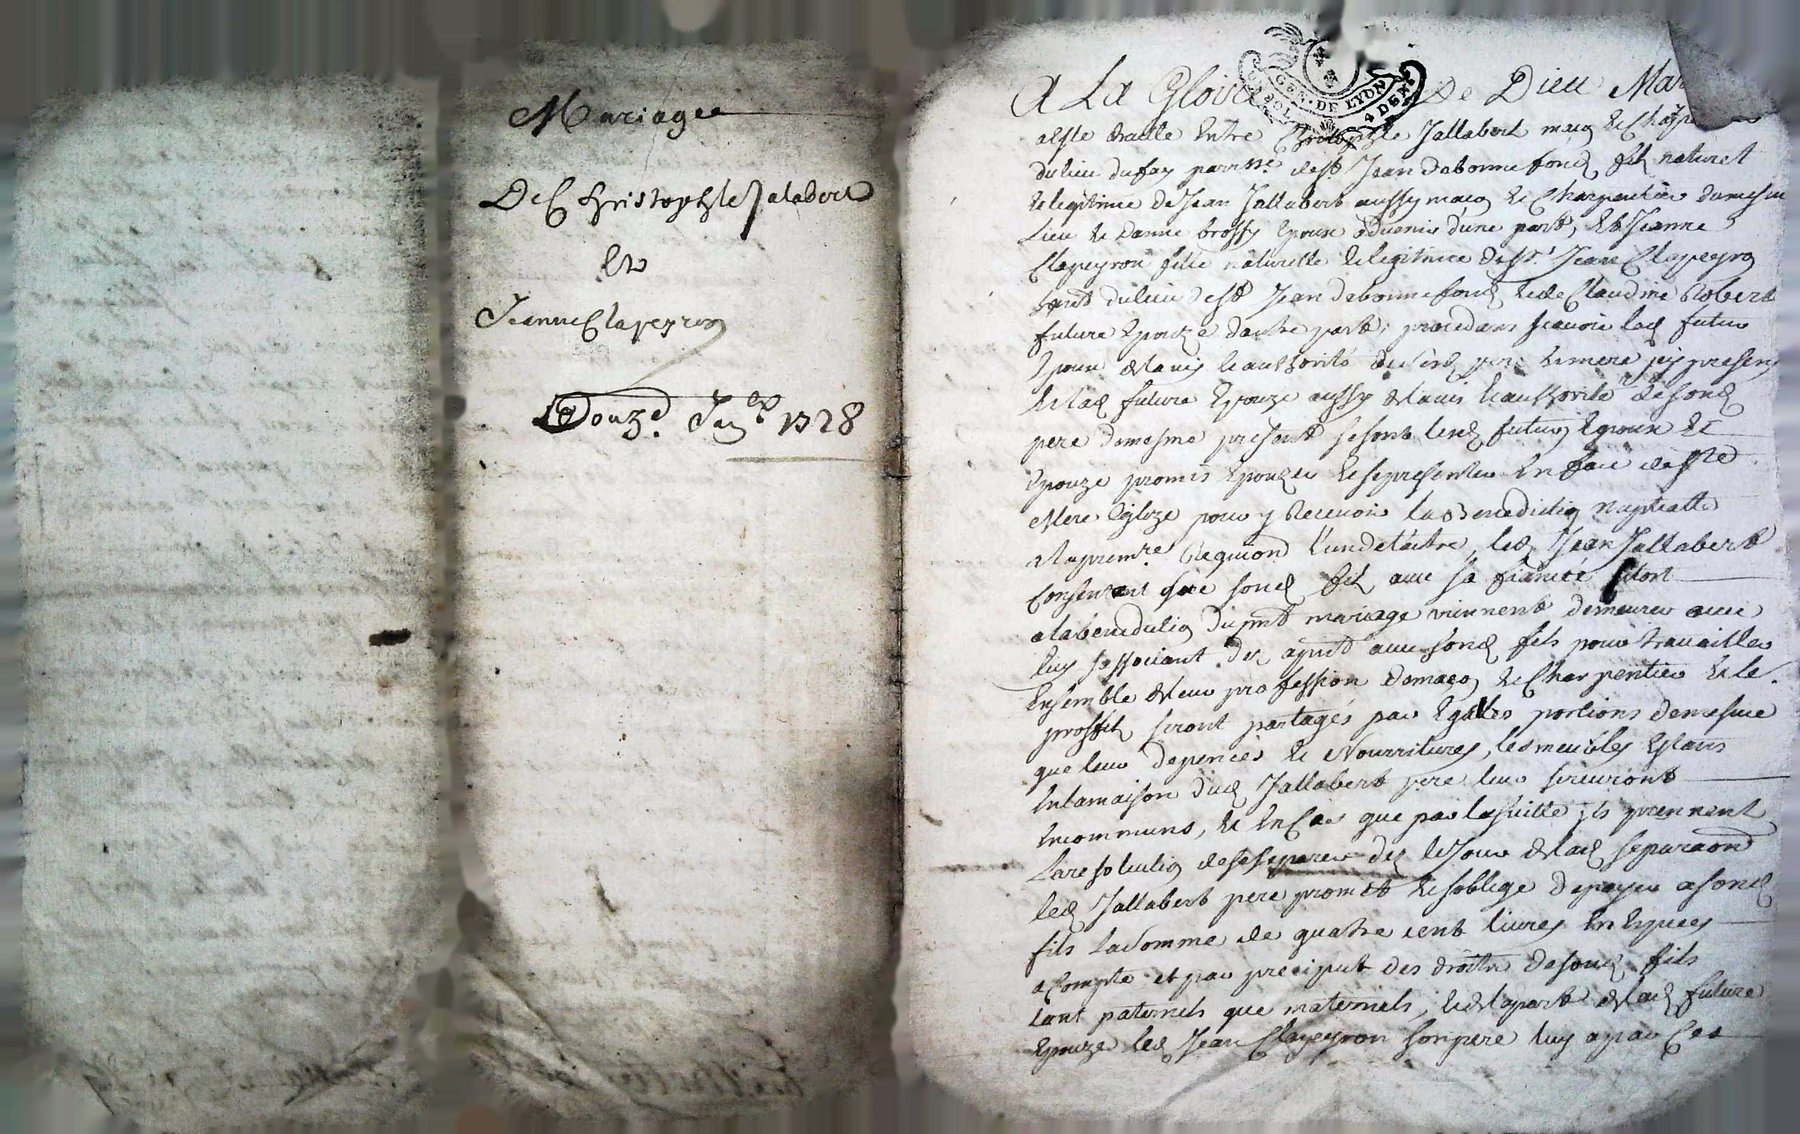 Mariage
De Christophle Jalabert
Et
Jeanne Clapeyron
Douze Jan 1728
GEN. DE LYON
A La Gloire De Dieu Mar
esté traitté Entre Christophle Jallabert maçon & Charpen
du lieu du fay parr.sse de st Jean de bonnefond, fils naturel
& legitime de Jean Jallabert aussy maçon & Charpentier du mesme
Lieu & brossy Epoux advenir d'une part, Et Jeanne
Clapeyron fille naturelle & legitime de Jean Clapeyron
du lieu de st Jean de bonnefond, & de Claudine Robert
future Epouze d'autre part, procedans sçavoir led futur
Epoux de l'avis & authorité de ses pere & mere icy presens
& lad future Epouze aussy de l'avis & authorité de sond
pere de mesme present se sont lesd futurs Epoux &
Epouze promis Epouzer & se presenter En face de ste
Mere Eglize pour y Recevoir la Benediction nuptialle
a la premre Requion L'un de l'autre, led Jean Jallabert
Consentant que sond fils avec sa fiancée
a la benediction du pnt mariage viennent demeurer avec
luy s'associant des a pnt avec sond fils pour travailler
Ensemble de leur profession de maçon & Charpentier & le
proffit seront partagés par Egalles portions de mesme
que leur depences & Nourritures, les meubles Estans
En la maison dud Jallabert pere leur serviront
En communs, & En Cas que par la suitte ils prennent
La resolution de se separer des le Jour de lad separaon
led Jallabert pere promet & s'oblige de payer a sond
fils La Somme de quatre cent livres En Especes
a Compte et par preciput des droits de sond fils
tant paternels que maternels, & de la part de lad future
Epouze led Jean Clapeyron son pere luy a par Ces